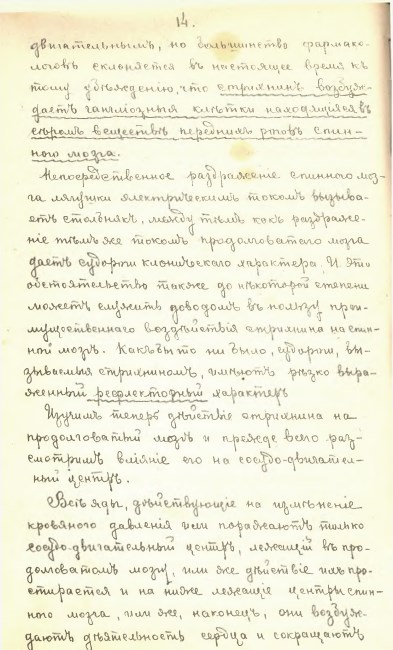 14.
двигательнымъ, но большинство фармако-
логовъ склоняется въ настоящее время къ
тому убѣжденію, что стрихнинъ возбуж-
даетъ гангліозныя клѣтки находящіяся въ
сѣромъ веществѣ переднихъ роговъ спин-
ного мозга.
Непосредственное раздраженіе спинного моз-
га лягушки электрическимъ токомъ вызыва-
етъ столбнякъ, между тѣмъ какъ раздраже-
ніе тѣмъ же токомъ продолговатаго мозга
даетъ судороги клоническаго характера. И это
обстоятельство также до нѣкоторой степени
можетъ служить доводомъ въ пользу преи-
мущественнаго воздѣйствія стрихнина на спин-
ной мозгъ. Какъ бы то ни было, судороги, вы-
зываемыя стрихниномъ, имѣютъ рѣзко выра-
женный рефлекторный характеръ
Изучимъ теперь дѣйствіе стрихнина на
продолговатый мозгъ и прежде всего раз-
смотримъ вліяніе его на сосудо-двигатель-
ный центръ.
Всѣ яды, дѣйствующіе на измѣненіе
кровяного давленія или поражаютъ только
сосудо-двигательный центръ, лежащій въ про-
долговатомъ мозгу, или же дѣйствіе ихъ про-
стирается и на ниже лежащіе центры спин-
ного мозга, или же, наконецъ, они возбуж-
даютъ дѣятельность сердца и сокращаютъ